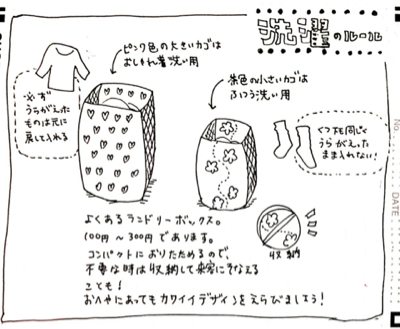 洗濯のルール
ピンク色の大きいカゴは
おしゃれ着洗い用
茶色の小さいカゴは
ふつう洗い用
※必ず
うらがえった
ものは元に
戻して入れる
くつ下も同じく
うらがえった
まま入れない!
よくあるランドリーボックス。
100円〜300円であります。
コンパクトにおりたためるので、
不要な時は収納して来客にそなえる
ことも!
おへやにあってもカワイイデザインをえらびましょう!
収納
No.
DATE